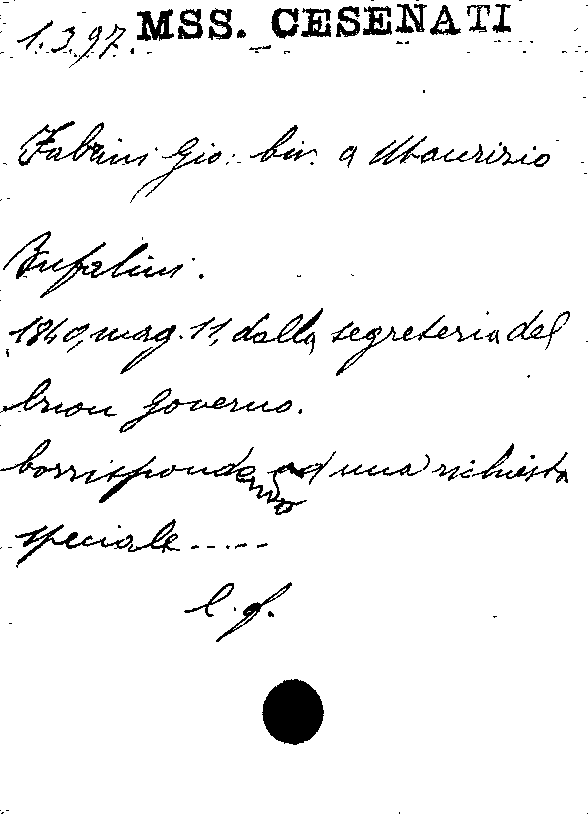 1.3.97. MSS. CESENATI
Fabrini Gio: bir. a Maurizio
Bufalini.
1840, mag. 11, dalla segreteria del
buon Governo.
Corrispondendo ad una richiesta
speciale.....
l. f.